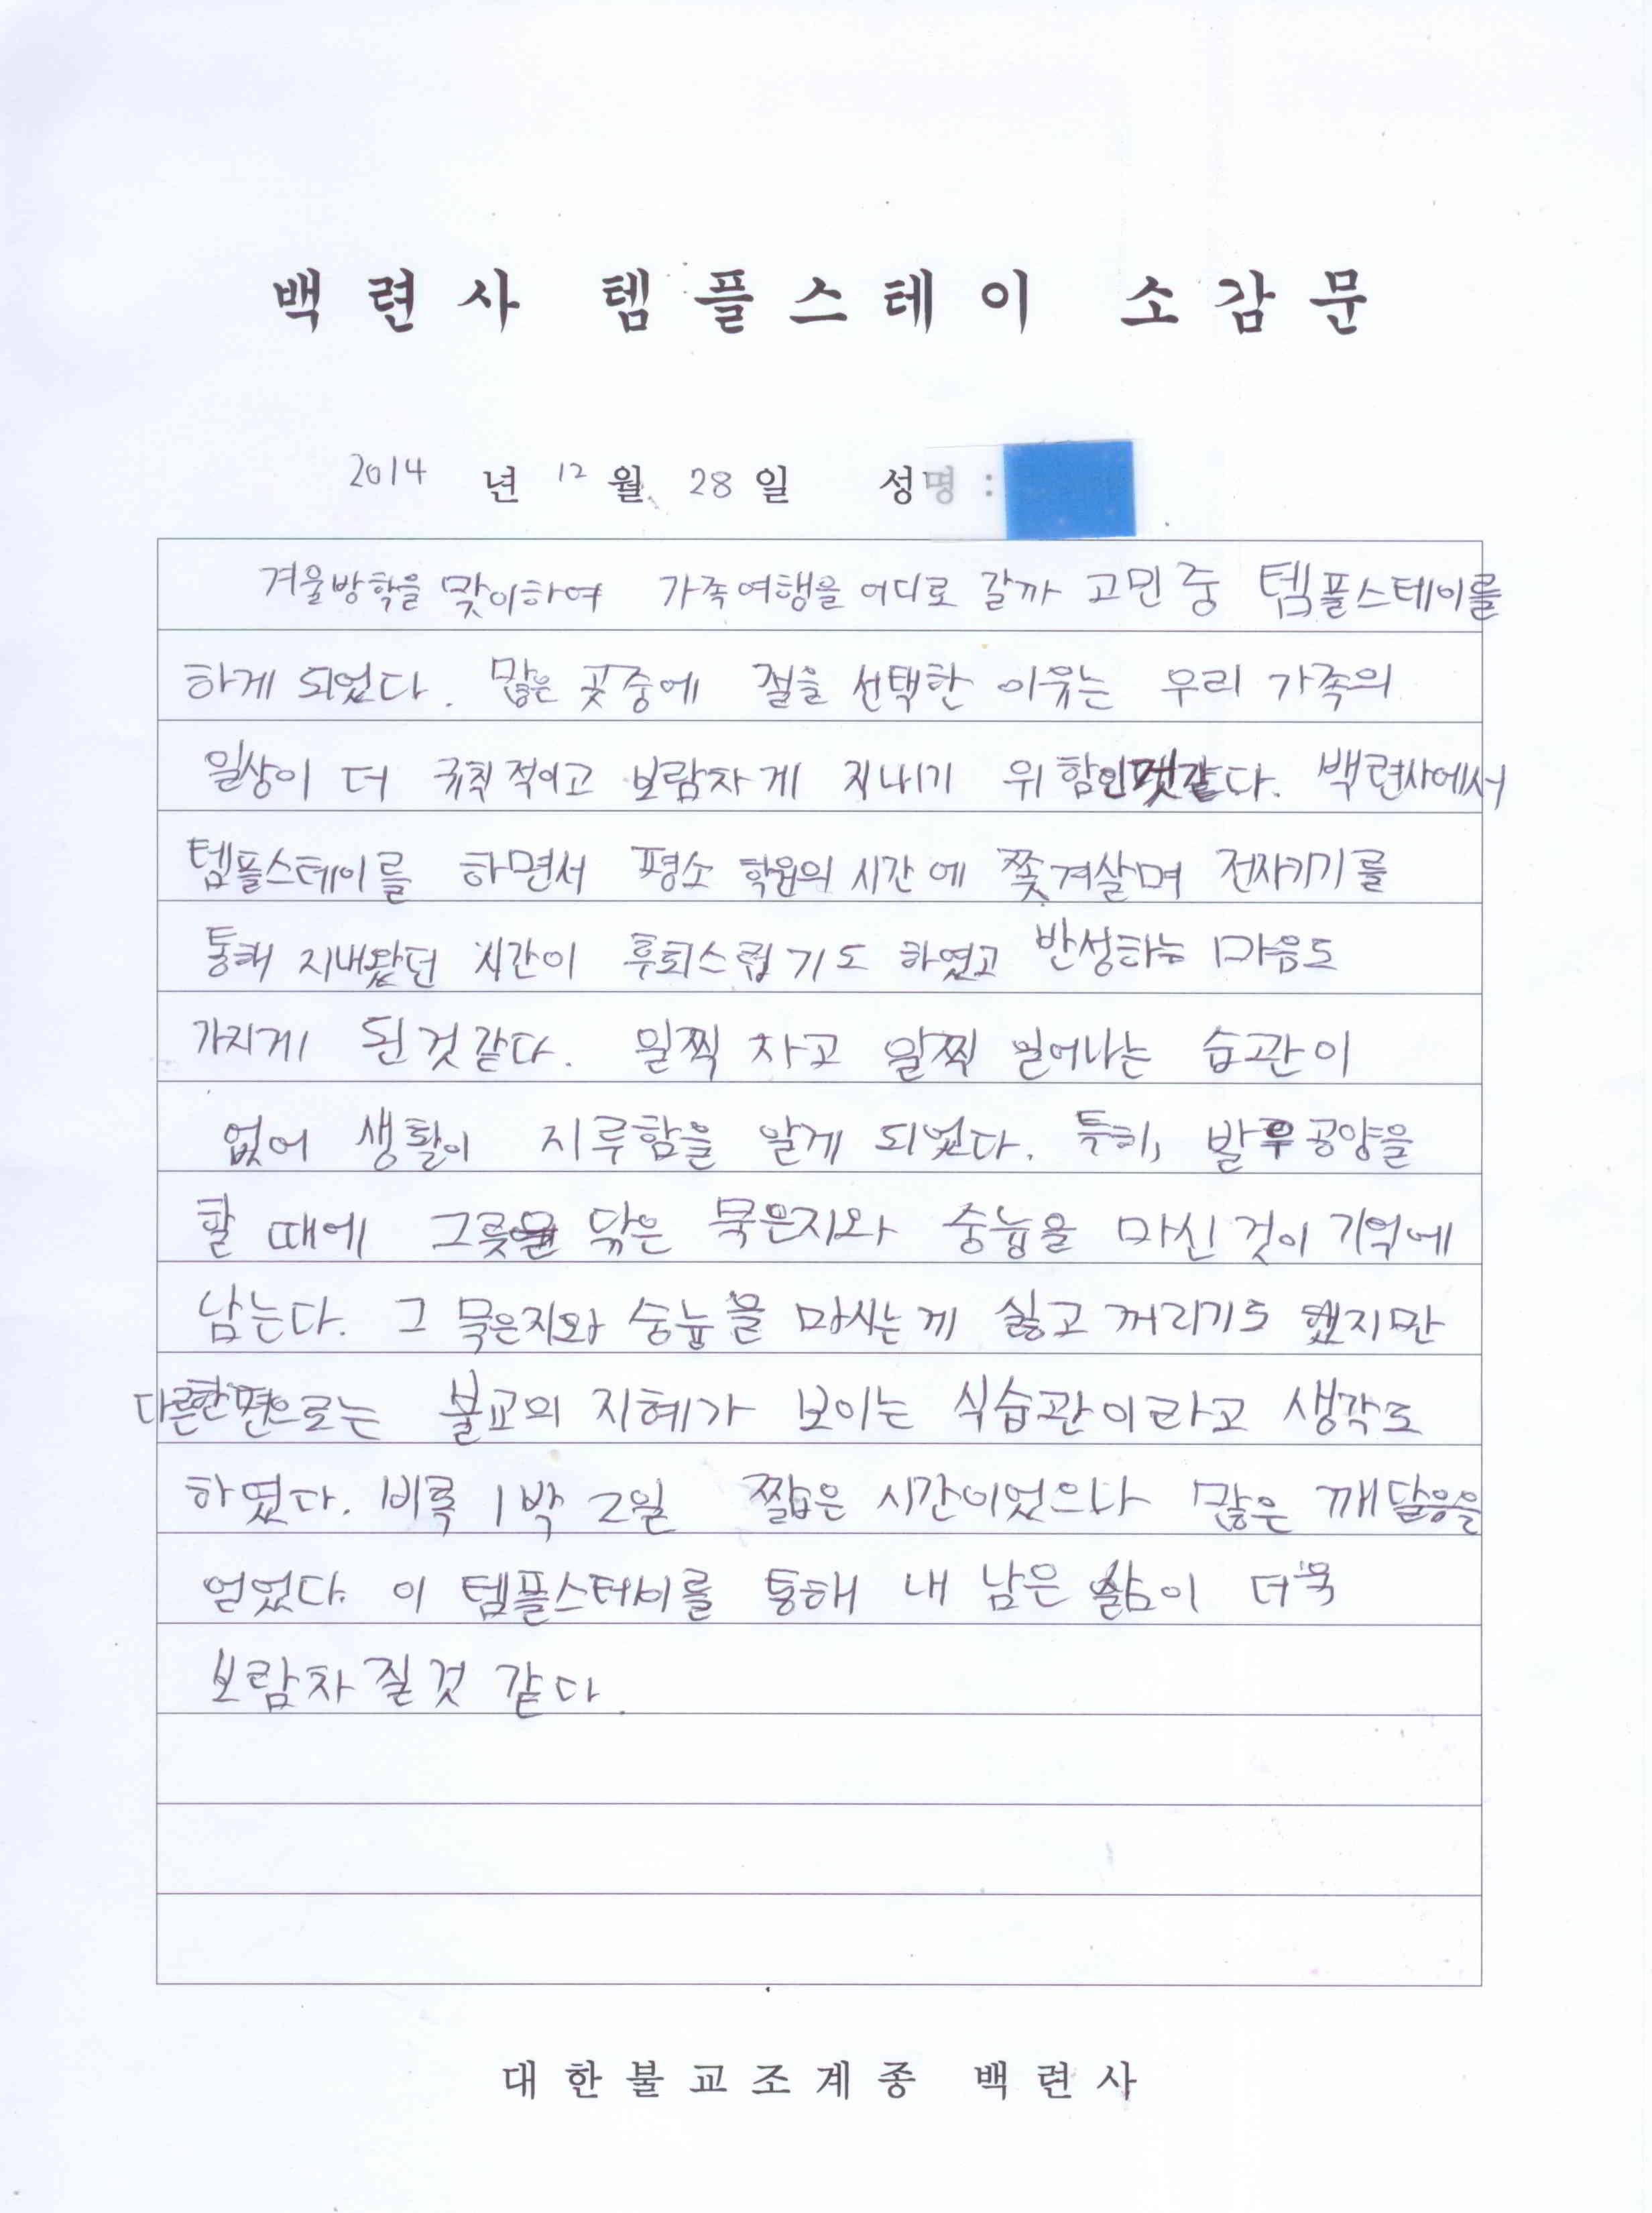 백련사 템플스테이 소감문
2014 년 12 월 28 일 성명 :
겨울방학을 맞이하여 가족여행을 어디로 갈까 고민 중 템플스테이를
하게 되었다. 많은 곳중에 절을 선택한 이유는 우리 가족의
일상이 더 규칙적이고 보람차게 지내기 위함인것같다. 백련사에서
템플스테이를 하면서 평소 학원의 시간에 쫓겨살며 전자기기를
통해 지내왔던 시간이 후회스럽기도 하였고 반성하는 마음도
가지게 된것같다. 일찍 자고 일찍 일어나는 습관이
없어 생활이 지루함을 알게 되었다. 특히, 발우공양을
할 때에 그릇을 닦은 묵은지와 숭늉을 마신 것이 기억에
남는다. 그 묵은지와 숭늉을 마시는게 싫고 꺼리기도 했지만
다른한편으로는 불교의 지혜가 보이는 식습관이라고 생각도
하였다. 비록 1박 2일 짧은 시간이었으나 많은 깨달음을
얻었다. 이 템플스테이를 통해 내 남은 삶이 더욱
보람차질것 같다.
대한불교조계종 백련사